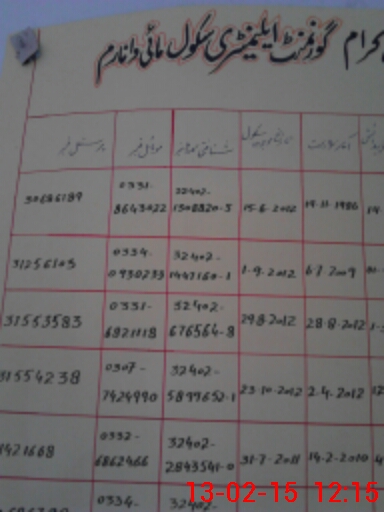 حرام گورنمنٹ ایلیمنٹری سکول مائی دانارم
پرسنل نمبر موبائل نمبر شناختی کارڈ نمبر
30686189 0331-8643022 32402-1308820-5 15-6-2012 19-11-1986
31256103 0334-0930233 32402-1447160-1 1-9-2012 6-7-2009
31553583 0331-6921118 32402-676564-8 29-8-2012 28-8-2012
31554238 0307-7424990 32402-5899652-1 23-10-2012 2-4-2012
1421668 0332-6862466 32402-2843541-0 31-7-2011 14-2-2010
0334- 32402-
13-02-15 12:15